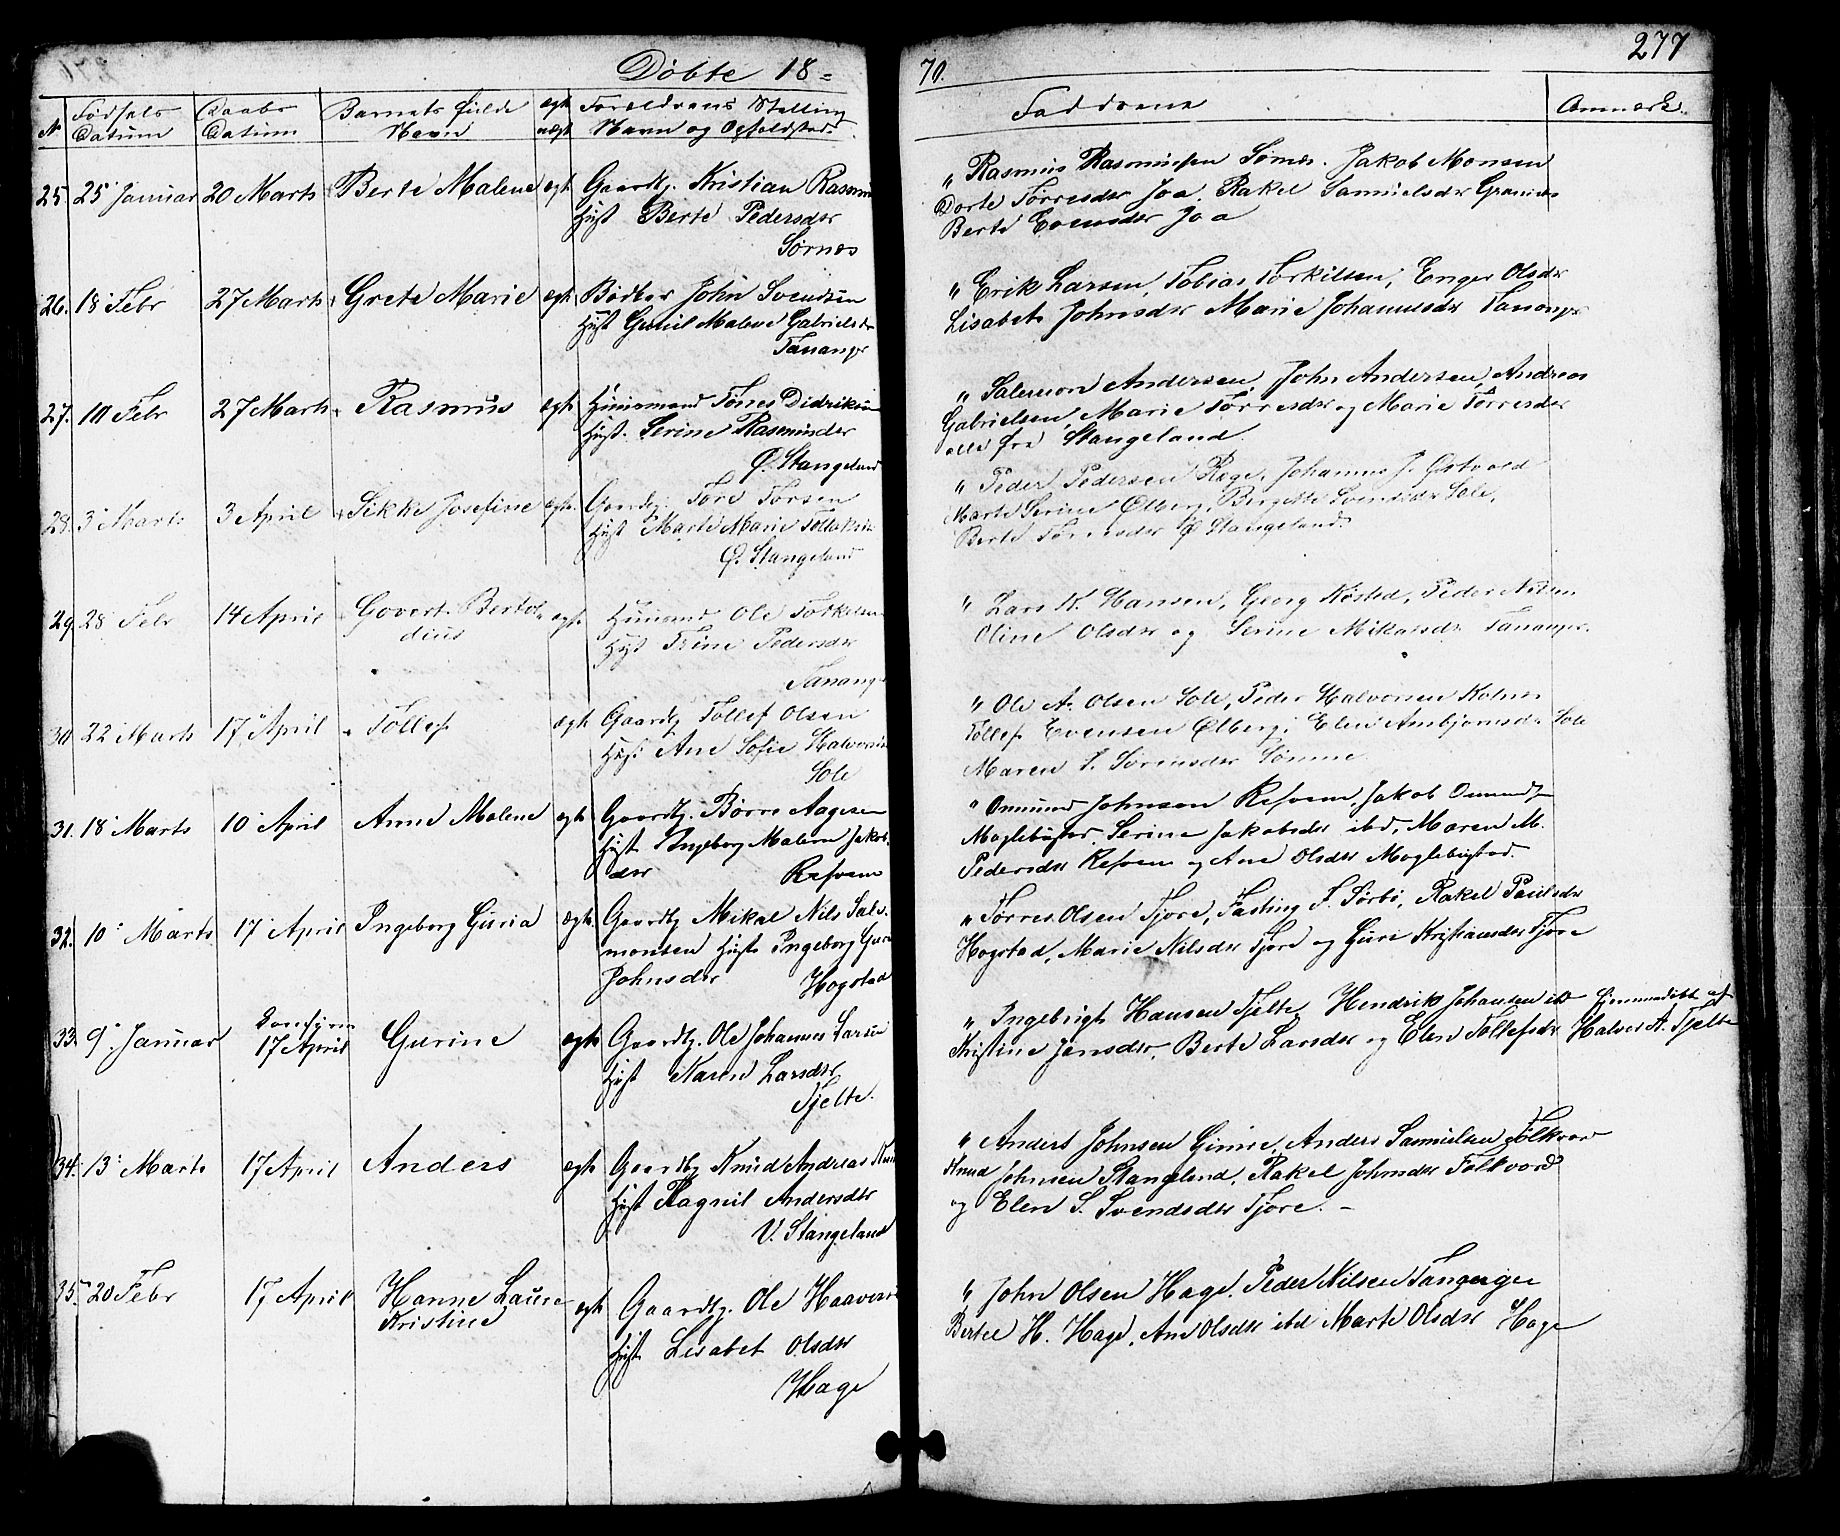 Döbte 18=
70.
277
No Födsels Datum
Daabs Datum
Barnets fulde Navn
ægt uægt
Forældrens Stilling Navn og Opholdsted
Faddrene
Anmærk.
25. 25 Januar 20 Marts Berte Malene ægt Gaardbr. Kristian Rasmus
Hust Berte Pedersdr
Sørnes
" Rasmus Rasmussen Sømes. Jakob Monsen
Dorte Tørresdr Joa, Rakel Samuelsdr Grannes
Berte Evensdr Joa
26. 18 Febr 27 Marts Grete Marie ægte Bødker John Svendsen
Hust Gunil Malene Gabrielsdr
Tananger
" Erik Larsen, Tobias Torkilsen, Enger Olsdr
Lisabet Johnsdr Marie Johannesdr Tananger
27. 10 Febr 27 Marts Rasmus ægte Huusmand Tønes Didriksen
Hust. Serine Rasmusdr
Ø. Stangeland
" Salemon Andersen, John Andersen, Andreas
Gabrielsen, Marie Tørresdr og Marie Tørresdr
alle fra Stangeland.
28. 3 Marts 3 April Sikke Josefine ægte Gaardbr. Tore Torsen
Hust Marte Marie Tollaksdr
Ø. Stangeland
" Peder Pedersen Rege, Johannes J. Østvold
Marte Serine Ølberg, Bergette Svensdr Sole,
Berte Torresdr Ø Stangeland.
29. 28 Febr 14 April Govert Bertol=
dius
ægte Huusmand Ole Torkelsen
Hust Trine Pedersdr
Tananger
" Lars K. Hansen, Georg Kosted, Peder
Oline Olsdr og Serine Mikalsdr Tananger.
30 22 Marts 17 April Tollef ægte Gaardbr Tollef Olsen
Hust Ane Sofie Halvorsdr
Sole
" Ole A. Olsen Sole, Peder Halvorsen Kolnes
Tollef Evensen Ølberg, Elen Ambjornsdr Sole
Maren S. Sørensdr Sømme
31. 18 Marts 10 April Anne Malene ægte Gaardbr. Børre Aagesen
Hust Ingeborg Malene Jakob
dsr Refvem
" Omund Johnsen Refvem, Jakob Omundsen
Meglebustad, Serine Jakobsdr ibd, Maren M.
Pedersdr Refvem og Ane Olsdr Moglebustad.
32. 10 Marts 17 April Ingeborg Guria ægte Gaardbr Mikal Nils Salo=
monsen Hust Ingeborg Guria
Johnsdr Hogstad
" Tørres Olsen Tjore, Fasting F. Sørbø, Rakel Paulsdr
Hogstad, Marie Nilsdr Tjore og Guri Kristiansdr Tjore
33. 9 Januar 17 April Gurine ægte Gaardbr. Ole Johannes Larsen
Hust Karen Larsdr
Tjelte.
" Ingebrigt Hansen Tjelte, Hendrik Johansen ibd
Kristine Jensdr, Berte Larsdr og Elen Tollefsdr
Hjemmedøbt af
Halvor A. Tjelte
34. 13 Marts 17 April Anders ægte Gaardbr Knud Andreas
Hust Ragnil Andersdr
V. Stangeland
" Anders Johnsen Gimre, Anders Samuelsen Folkvor
Knud Johnsen Stangeland, Rakel Johnsdr Folkvord
og Elen S. Svendsdr Tjore. –
35. 20 Febr 17 April Hanne Laure
Kristine
ægte Gaardbr. Ole Haavers
Hust Lisabet Olsdr
Hage
" John Olsen Hage, Peder Nilsen Tananger
Bertel H. Hage, Ane Olsdr ibd Marte Olsdr Hage